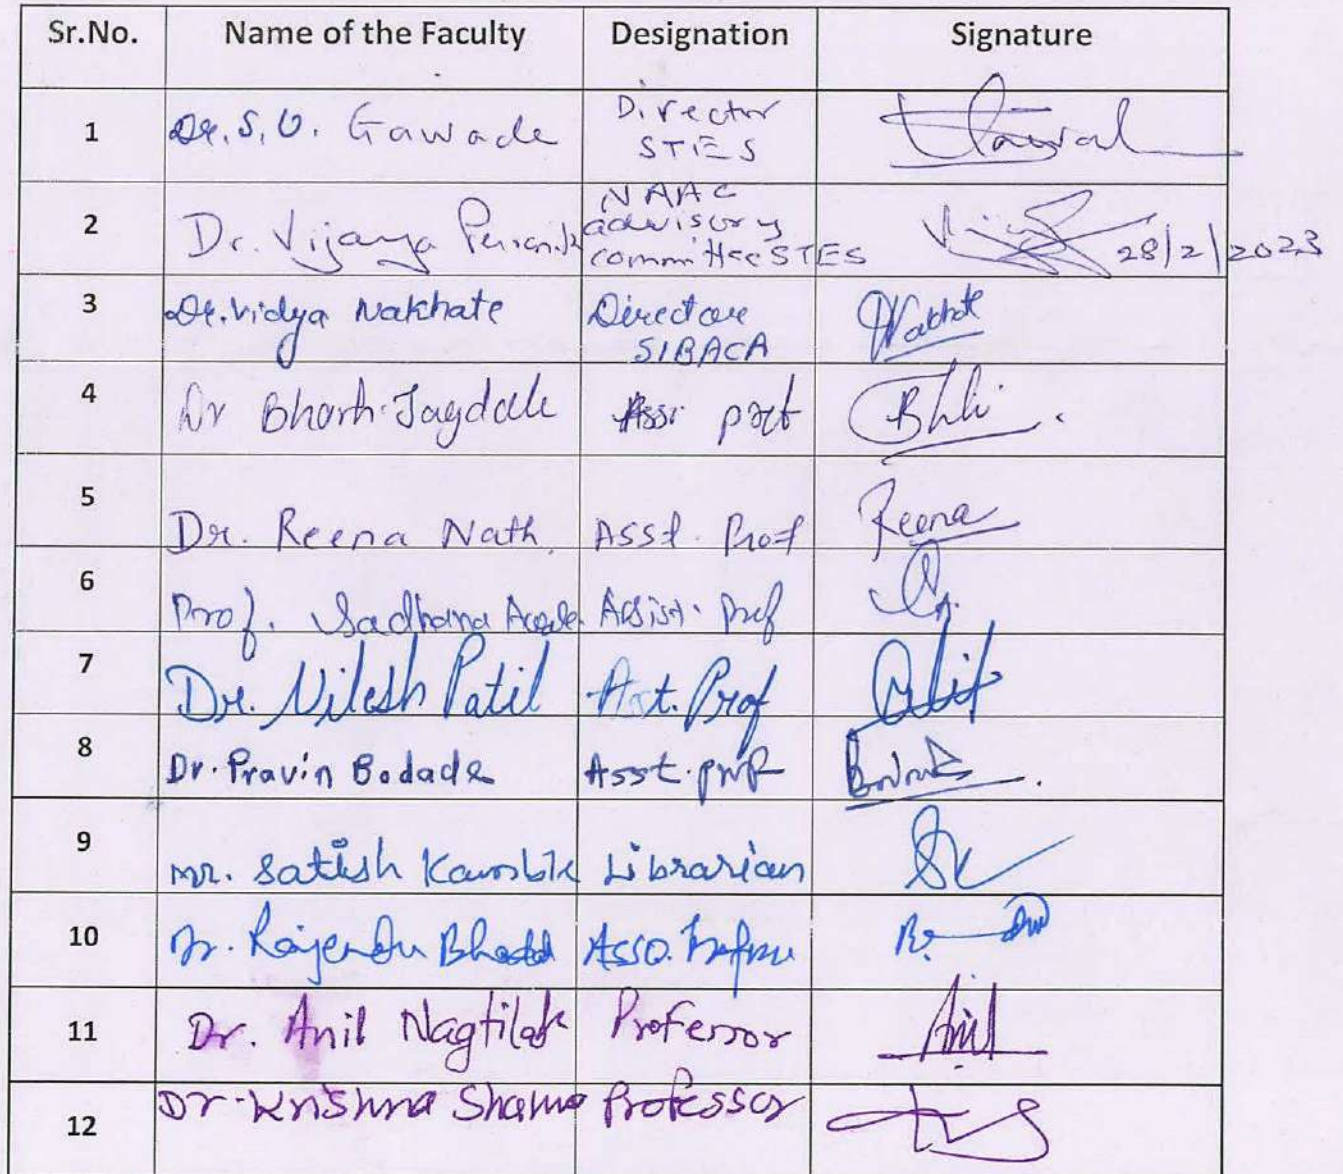 Sr.No. Name of the Faculty Designation Signature
1 Dr. S. U. Gawade Director
STES
2 Dr. Vijaya NAAC
advisory
committee STES 28/2/2023
3 Dr. Vidya Nakhate Director Nakhate
SIBACA
4 Dr Bharti Jagdale Assi prof
5 Dr. Reena Nath Asst. Prof Reena
6 Prof. Sadhana Assist. Prof
7 Dr. Nilesh Patil Asst. Prof
8 Dr. Pravin Bodade Asst. prof
9 Mr. Satish Kamble Librarian
10 Dr. Rajendra Asso.
11 Dr. Anil Nagtilak Professor Anil
12 Dr. Krishna Sharma Professor